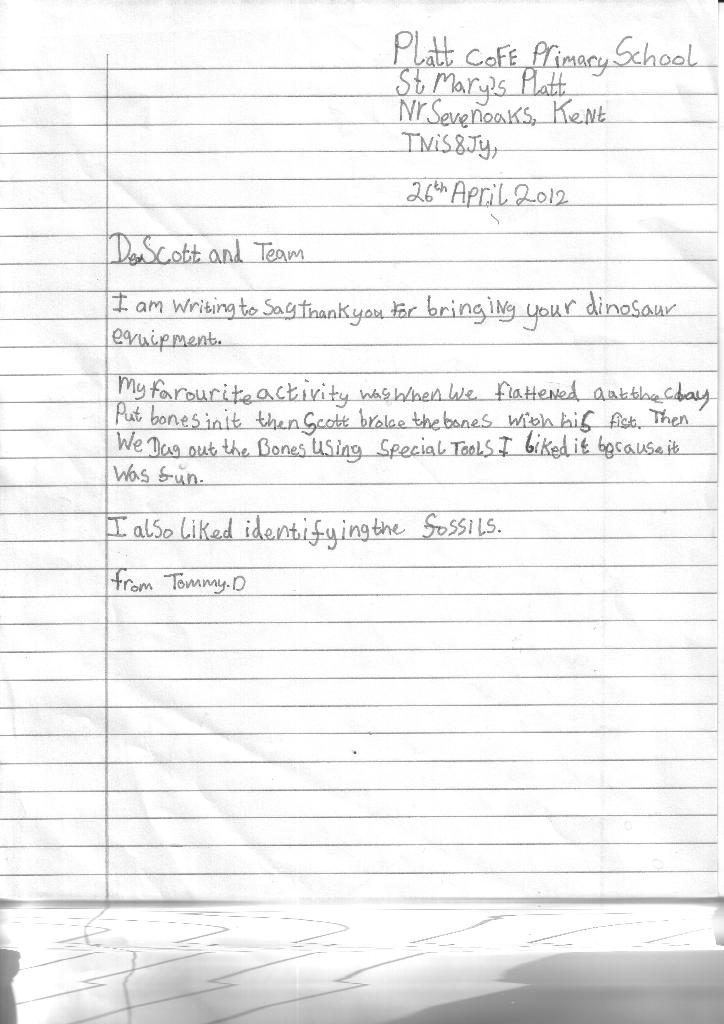 Platt CofE Primary School
St Mary's Platt
Nr Sevenoaks, Kent
TN15 8Jy,
26th April 2012
Dear Scott and Team
I am writing to say thank you for bringing your dinosaur
equipment.
My favourite activity was when we flattened out the clay
Put bones in it then Scott broke the bones with his fist. Then
We Dug out the Bones Using Special Tools I liked it because it
was fun.
I also liked identifying the fossils.
from Tommy.D